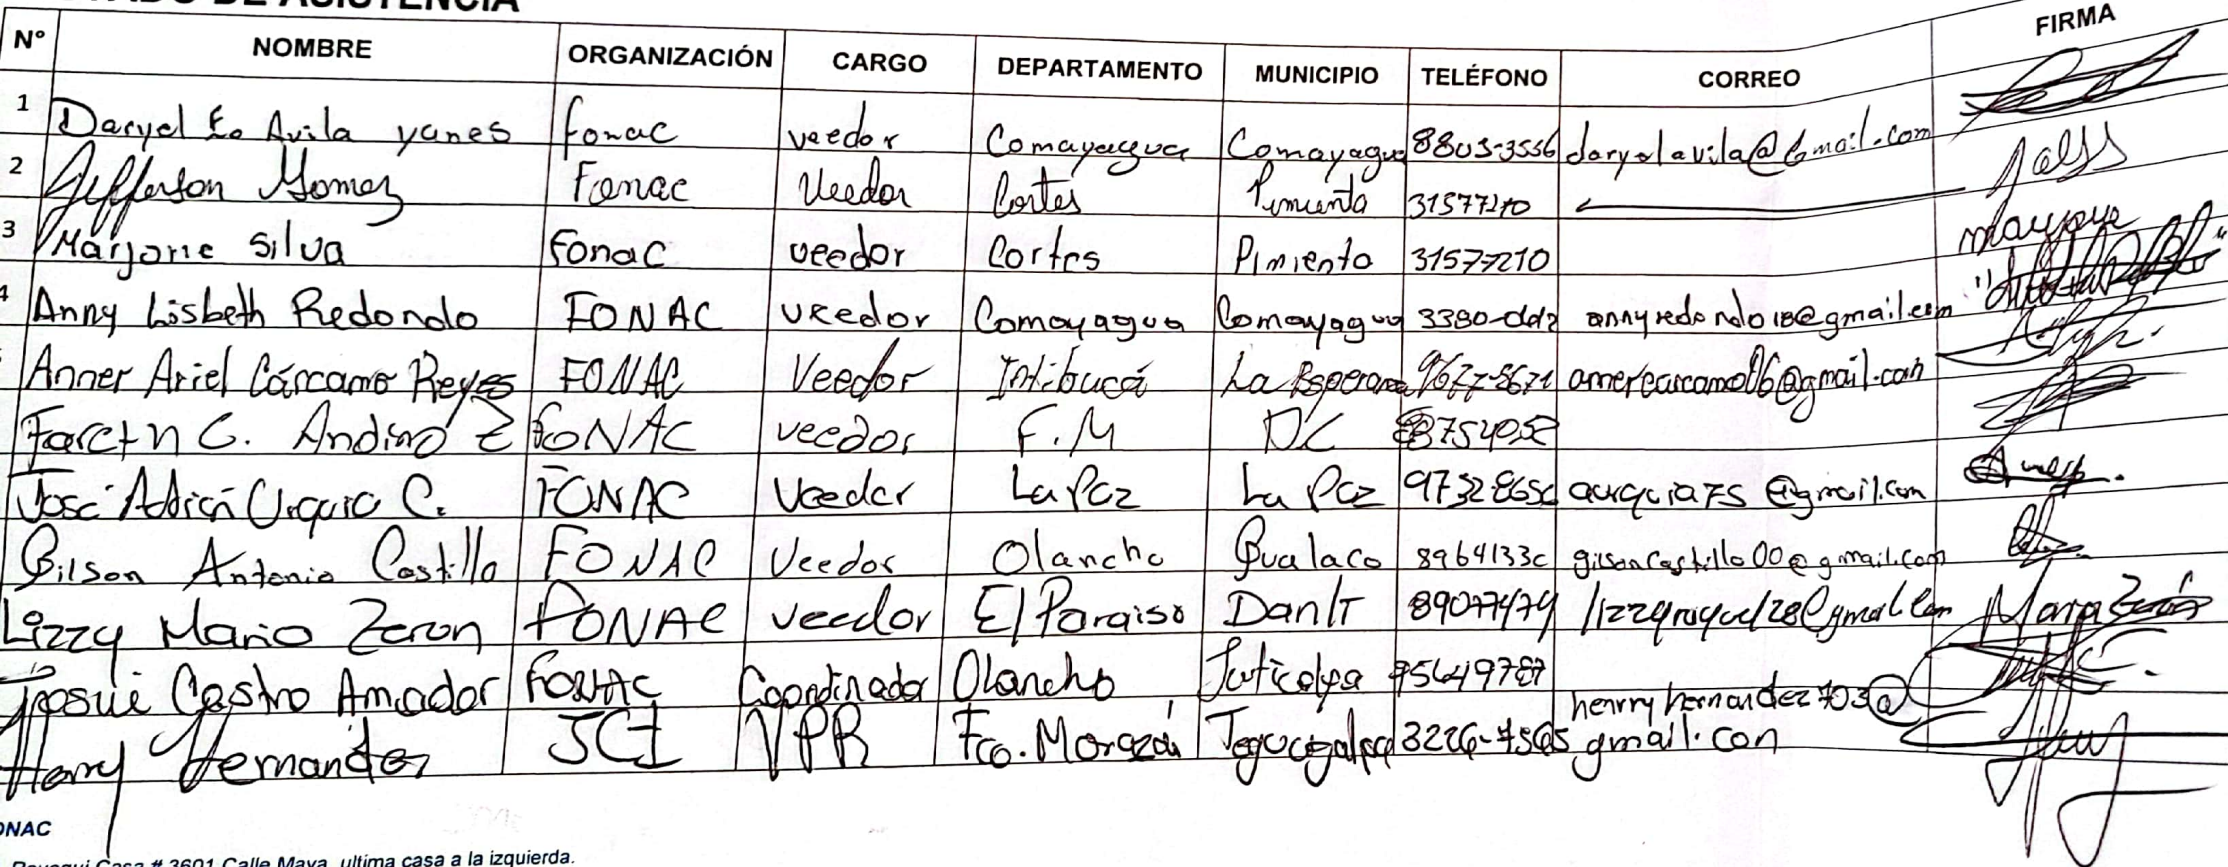 DE ASISTENCIA
Nº NOMBRE ORGANIZACIÓN CARGO DEPARTAMENTO MUNICIPIO TELÉFONO CORREO FIRMA
1 Daryel Avila yanes fonac veedor Comayagua Comayagua 8803-3556 daryelavila@Gmail.com
2 Jefferson Gomez Fonac Veedor Cortes Pimienta 31577210
3 Marjorie Silva Fonac veedor Cortes Pimienta 31577210 marjorie
4 Anny Lisbeth Redondo FONAC veedor Comayagua Comayagua annyredondo18@gmail.com
Anner Ariel Cárcamo Reyes FONAC Veedor Intibucá La Esperanza 9677-8671 annercarcamo06@gmail.com
C. Andino FONAC veedor F.M DC
José Urquia C. FONAC Veedor La Paz La Paz aurquia75@gmail.com
Gilson Antonio Castillo FONAC Veedor Olancho Gualaco 89641330 gilsoncastillo00@gmail.com
Lizzy Mario Zeron FONAC veedor El Paraiso Danlí 89077474
Josué Castro Amador FONAC Coordinador Olancho Juticalpa 95649787
henrryhernandez703@
Henry Hernandez JCI VPR Fco. Morazán Tegucigalpa gmail.con
ONAC
Casa # 3601 Calle Maya, ultima casa a la izquierda.